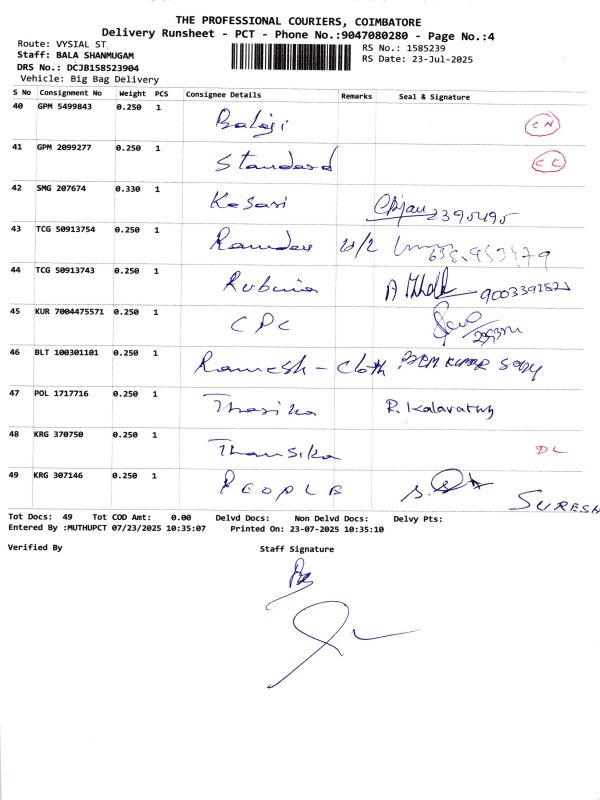 THE PROFESSIONAL COURIERS, COIMBATORE
Delivery Runsheet - PCT - Phone No.:9047080280 - Page No.:4
Route: VYSIAL ST
RS No.: 1585239
Staff: BALA SHANMUGAM
RS Date: 23-Jul-2025
DRS No.: DCJB158523904
Vehicle: Big Bag Delivery
S No Consignment No Weight PCS Consignee Details Remarks Seal & Signature
40 GPM 5499843 0.250 1 Balaji CN
41 GPM 2099277 0.250 1 Standard CC
42 SMG 207674 0.330 1 Kesari 2395495
43 TCG 50913754 0.250 1 Ramdev
44 TCG 50913743 0.250 1 Rubinia
45 KUR 7004475571 0.250 1 CPC
46 BLT 100301101 0.250 1 Ramesh - cloth
47 POL 1717716 0.250 1 Tharika R. Kalavathy
48 KRG 370750 0.250 1 Thansika DL
49 KRG 307146 0.250 1 PEOPLE SURESH
Tot Docs: 49 Tot COD Amt: 0.00 Delvd Docs: Non Delvd Docs: Delvy Pts:
Entered By :MUTHUPCT 07/23/2025 10:35:07 Printed On: 23-07-2025 10:35:10
Verified By Staff Signature